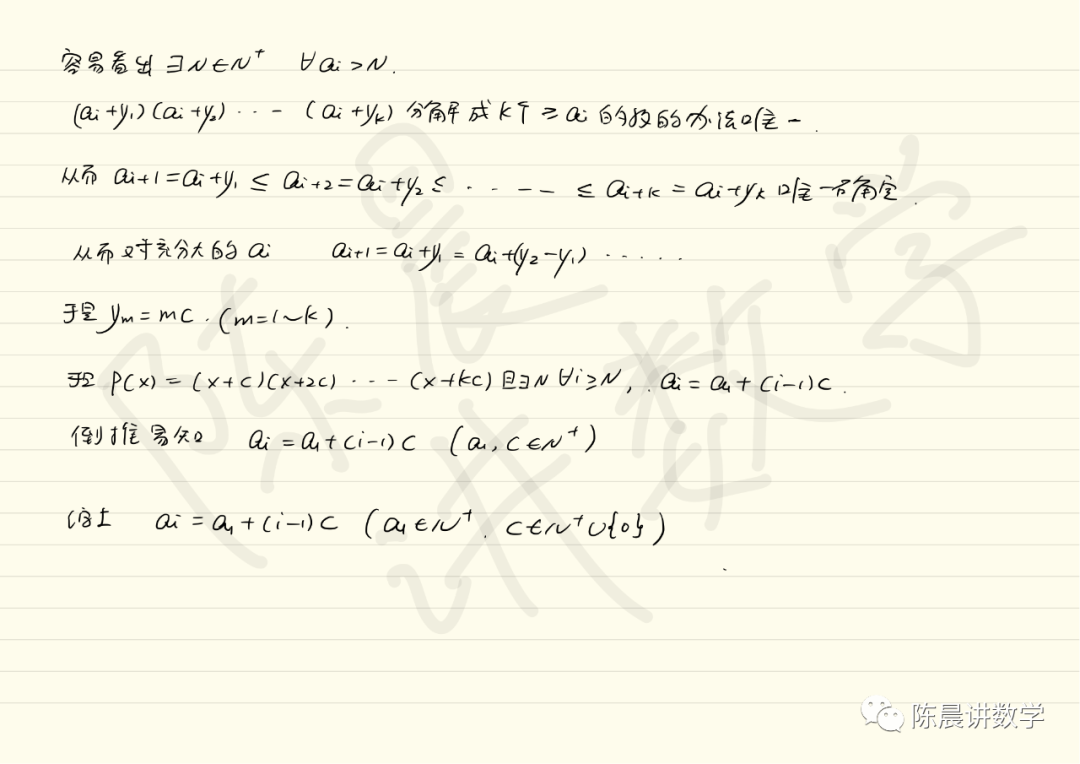 容易看出 ∃N∈N⁺ ∀ai>N.
(ai+y₁)(ai+y₂)···-(ai+yk) 分解成k个≥ai的数的办法唯一.
从而 ai+1=ai+y₁≤ai+2=ai+y₂≤·····≤ai+k=ai+yk 唯一确定.
从而对充分大的ai ai+1=ai+y₁=ai+(y₂-y₁)······
于是 ym=mc.(m=1~k).
于是 P(x)=(x+c)(x+2c)···-(x+kc)且∃N ∀i≥N, ai=a₁+(i-1)c.
倒推易知 ai=a₁+(i-1)c (a₁,c∈N⁺)
综上 ai=a₁+(i-1)c (a₁∈N⁺. c∈N⁺∪{0})
陈晨讲数学
陈晨讲数学